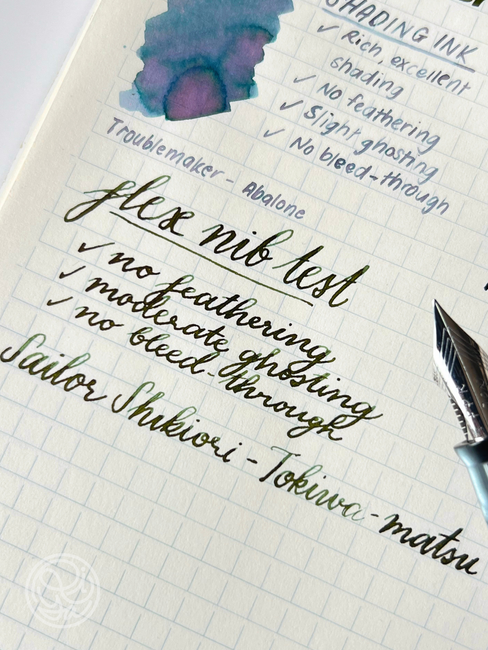 SHADING INK
✓ Rich, excellent
shading
✓ No feathering
✓ Slight ghosting
✓ No bleed-through
Troublemaker - Abalone
flex nib test
✓ no feathering
✓ moderate ghosting
✓ no bleed-through
Sailor Shikiori - Tokiwa-matsu